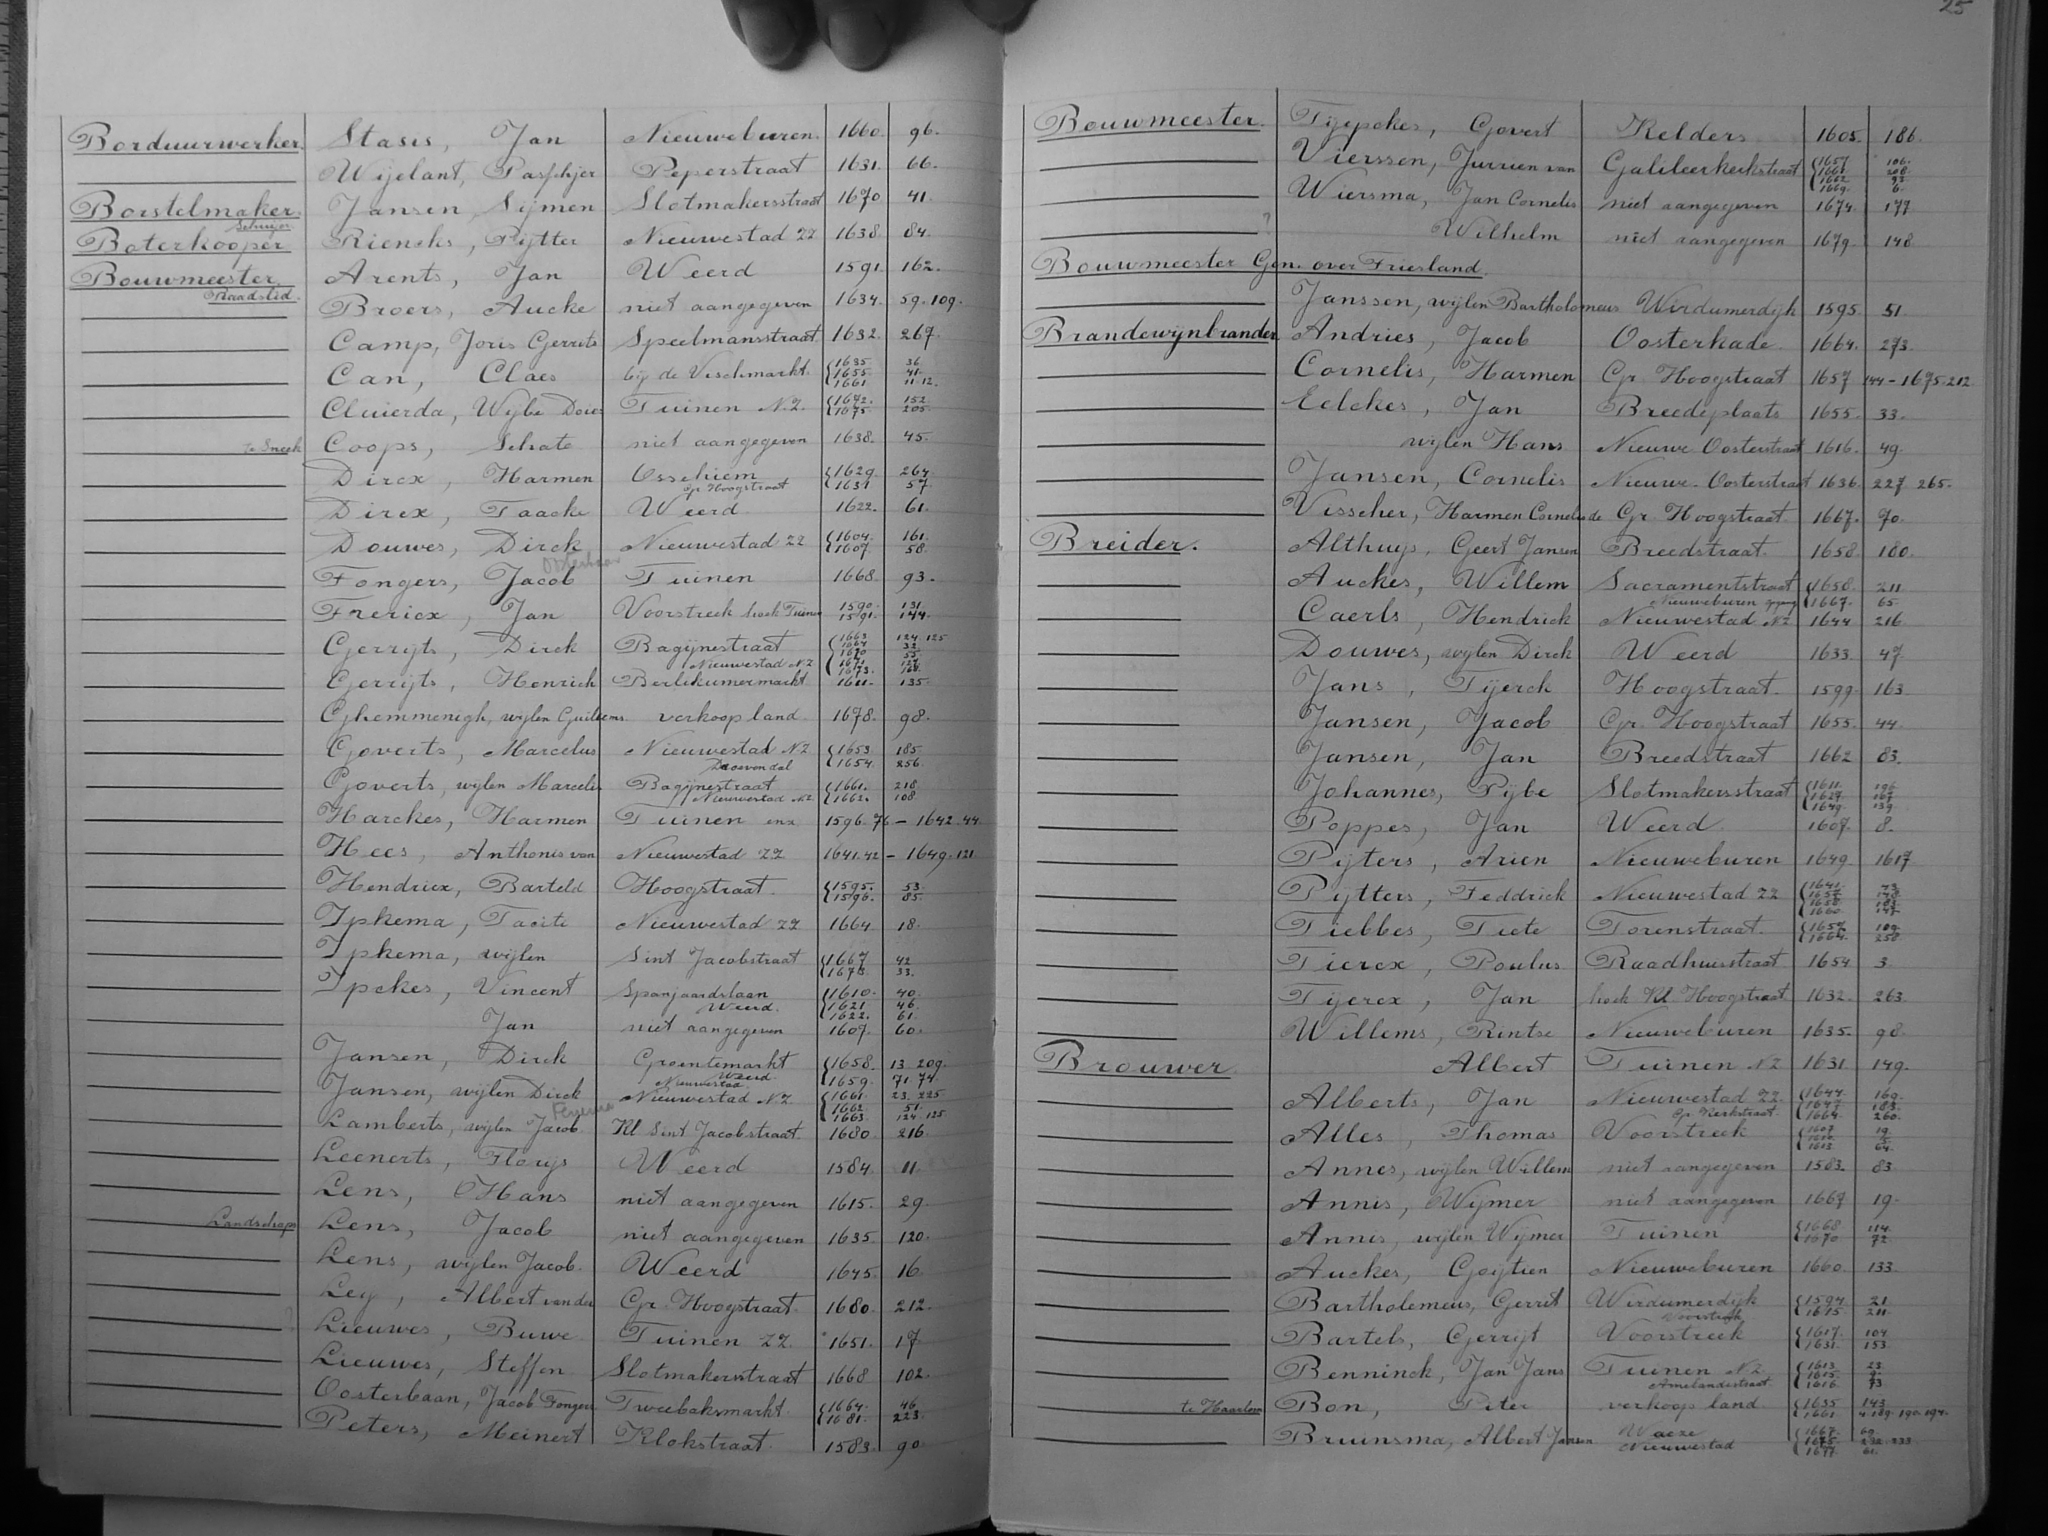 Borduurwerker. Stasis, Jan Nieuweburen. 1660. 96.
Wijelant, Passchjer Peperstraat 1631. 66.
Borstelmaker. Jansen, Sijmen Slotmakersstraat 1670 41.
Boterkooper Riencks, Pijtter Nieuwestad ZZ 1638. 84.
Bouwmeester. Arents, Jan Weerd 1591. 162.
Raadslid. Broers, Aucke niet aangegeven 1634. 59. 109.
Camp, Joris Gerrits Speelmansstraat. 1632. 267.
Can, Claes bij de Vischmarkt. 1635. 36. 1655. 41. 1661. 11.12.
Cluierda, Wybe Douwes Tuinen N.Z. 1642. 152. 1675. 205.
te Sneek Coops, Schato niet aangegeven 1638. 45.
Dircx, Harmen Osschiem 1629. 264.
Gr. Hoogstraat 1631 57.
Dircx, Taacke Weerd. 1622. 61.
Douwes, Dirck Nieuwestad ZZ 1604. 161. 1607. 58.
Oosterbaan
Fongers, Jacob Tuinen 1668. 93.
Frericx, Jan Voorstreek hoek Tuinen 1590. 131. 1591. 144.
Gerrijts, Dirck Bagijnestraat 1663 124. 125
Nieuwestad N.Z. 1673.
Gerrijts, Henrick Berlikumermarkt 1611. 135.
Ghemmenigh, wijlen Guilaems verkoop land. 1678. 98.
Goverts, Marcelus Nieuwestad N.Z. 1653. 185.
Droevendal 1654. 256.
Goverts, wijlen Marcelis Bagijnestraat 1661. 218.
Nieuwestad N.Z. 1662. 108.
Harckes, Harmen Tuinen enz 1596. 76 – 1642. 44.
Hees, Anthonis van Nieuwestad ZZ 1641. 42 – 1649. 121
Hendricx, Barteld Hoogstraat. 1595. 53. 1596. 85.
Ipkema, Tacite Nieuwestad ZZ 1664 18.
Ipkema, wijlen Sint Jacobstraat 1667 42 1673. 33.
Ipekes, Vincent Spanjaardslaan 1610. 40.
Weerd. 1621. 46. 1622. 61.
Jan niet aangegeven 1607. 60.
Jansen, Dirck Groentemarkt 1658. 13 209.
Weerd. Nieuwestad. 1659. 71. 74.
Jansen, wijlen Dirck Nieuwestad N.Z. 1661. 23. 225. 1662. 51. 1663. 124. 125
Lamberts, wijlen Jacob. Kl. Sint Jacobstraat. 1680. 216.
Leenerts, Florijs Weerd 1584. 11.
Lens, Hans niet aangegeven 1615. 29.
Landschaps Lens, Jacob niet aangegeven 1635 120.
Lens, wijlen Jacob. Weerd 1645. 16.
Ley, Albert van der Gr. Hoogstraat. 1680. 212.
Lieuwes, Buwe Tuinen ZZ. 1651. 17
Lieuwes, Steffen Slotmakersstraat 1668 102.
Oosterbaan, Jacob Fongers Tweebaksmarkt. 1664. 46 1681. 223.
Peters, Meinert Klokstraat. 1583. 90
25
Bouwmeester. Tijepckes, Govert Kelders. 1605. 186.
Vierssen, Jurrien van Galileerkerkstraat 1657 106. 1661. 208. 1662. 93. 1669. 6.
Wiersma, Jan Cornelis niet aangegeven 1674. 177
? Wilhelm niet aangegeven 1679. 148
Bouwmeester Gen. over Friesland.
Janssen, wijlen Bartholomeus Wirdumerdijk 1595. 51.
Brandewijnbrander. Andries, Jacob Oosterkade. 1664. 273.
Cornelis, Harmen Gr. Hoogstraat 1657 144 – 1675. 212.
Eelckes, Jan Breedeplaats 1655. 33.
wijlen Hans Nieuwe Oosterstraat 1616. 49.
Jansen, Cornelis Nieuwe Oosterstraat 1636. 227 265.
Visscher, Harmen Cornelis de Gr. Hoogstraat. 1667. 90.
Breider. Althuys, Geert Jansen Breedstraat. 1658. 180.
Auckes, Willem Sacramentstraat 1658. 211
Nieuweburen 1667. 65.
Caerls, Hendrick Nieuwestad NZ 1644 216.
Douwes, wijlen Dirck Weerd 1633. 47.
Jans, Tijerck Hoogstraat. 1599. 163.
Jansen, Jacob Gr. Hoogstraat 1655. 44.
Jansen, Jan Breedstraat 1662 83.
Johannes, Pijbe Slotmakersstraat 1611. 196. 1627. 167. 1649. 139.
Poppes, Jan Weerd. 1607. 8.
Pijters, Arien Nieuweburen 1649. 1617
Pijtters, Feddrick Nieuwestad ZZ 1641. 73. 1657. 1658. 1660. 147
Tiebbes, Tiete Torenstraat. 1657. 109. 1664. 258.
Tierex, Poulus Raadhuisstraat. 1654. 3.
Tijerex, Jan hoek Kl. Hoogstraat 1632. 263.
Willems, Rintse Nieuweburen 1635. 98.
Brouwer. Albert Tuinen NZ 1631 149.
Alberts, Jan Nieuwestad ZZ. 1644. 160.
Gr. Kerkstraat. 1647. 183. 1664. 260.
Alles, Thomas Voorstreek 1607 19. 1613. 64.
Annes, wijlen Willem niet aangegeven 1583. 83.
Annis, Wijmer niet aangegeven 1667 19.
Annis, wijlen Wijmer Tuinen 1668. 114. 1670 72.
Auckes, Goijtien Nieuweburen 1660. 133.
Bartholemeus, Gerrit Wirdumerdijk 1594. 21.
Voorstreek 1615 211.
Bartels, Gerrijt Voorstreek 1617. 104. 1631. 153.
Benninck, Jan Jans Tuinen NZ. 1613 23.
Amelandsstraat. 1615. 9. 1616. 73
te Haarlem Bon, Pieter verkoop land. 1655 143 1661 4. 189. 190. 194.
Bruinsma, Albert Jansen Waeze 1667. 60.
Nieuwestad 1675. 232. 233. 1677. 61.